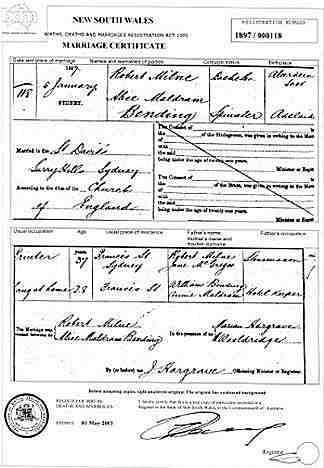 NEW SOUTH WALES
BIRTHS, DEATHS AND MARRIAGES REGISTRATION ACT 1995
MARRIAGE CERTIFICATE
REGISTRATION NUMBER
1897 / 000118
Date and place of marriage
Names and surnames of parties
Conjugal status
Birthplace
1897
118
5 January
SYDNEY
Robert Milne
Bachelor
Aberdeen
Scot
Alice Maldram
Bending
Spinster
Adelaide
Married in the St David's
Surry Hills Sydney
According to the rites of the Church
of England
The Consent of
the
of the Bridegroom, was given in writing to the Marr
of the said
being under the age of twenty one years.
Minister or Regist
The Consent of
the
of the Bride, was given in writing to the Marr
of the said
being under the age of twenty one years.
Minister or Regist
Usual occupation
Age
Usual place of residence
Father's name
Mother's name and
maiden surname
Father's occupation
Printer
years
37
Francis St
Sydney
Robert Milne
Jane McGregor
Stonemason
Living at home
28
Francis St
William Bending
Annie Maldram
Hotel Keeper
The Marriage was
solemnized between us
Robert Milne
Alice Maldram Bending
In the presence of us
Marian Hargrave
Wooldridge
By (or before) me J Hargrave Officiating Minister or Registrar.
Before accepting copies, sight unaltered original. The original has a coloured background.
REGISTRY OF BIRTHS
DEATHS AND MARRIAGES
SYDNEY
01 May 2003
I hereby certify that this is a true copy of particulars recorded in a
Register in the State of New South Wales, in the Commonwealth of Australia
Registrar